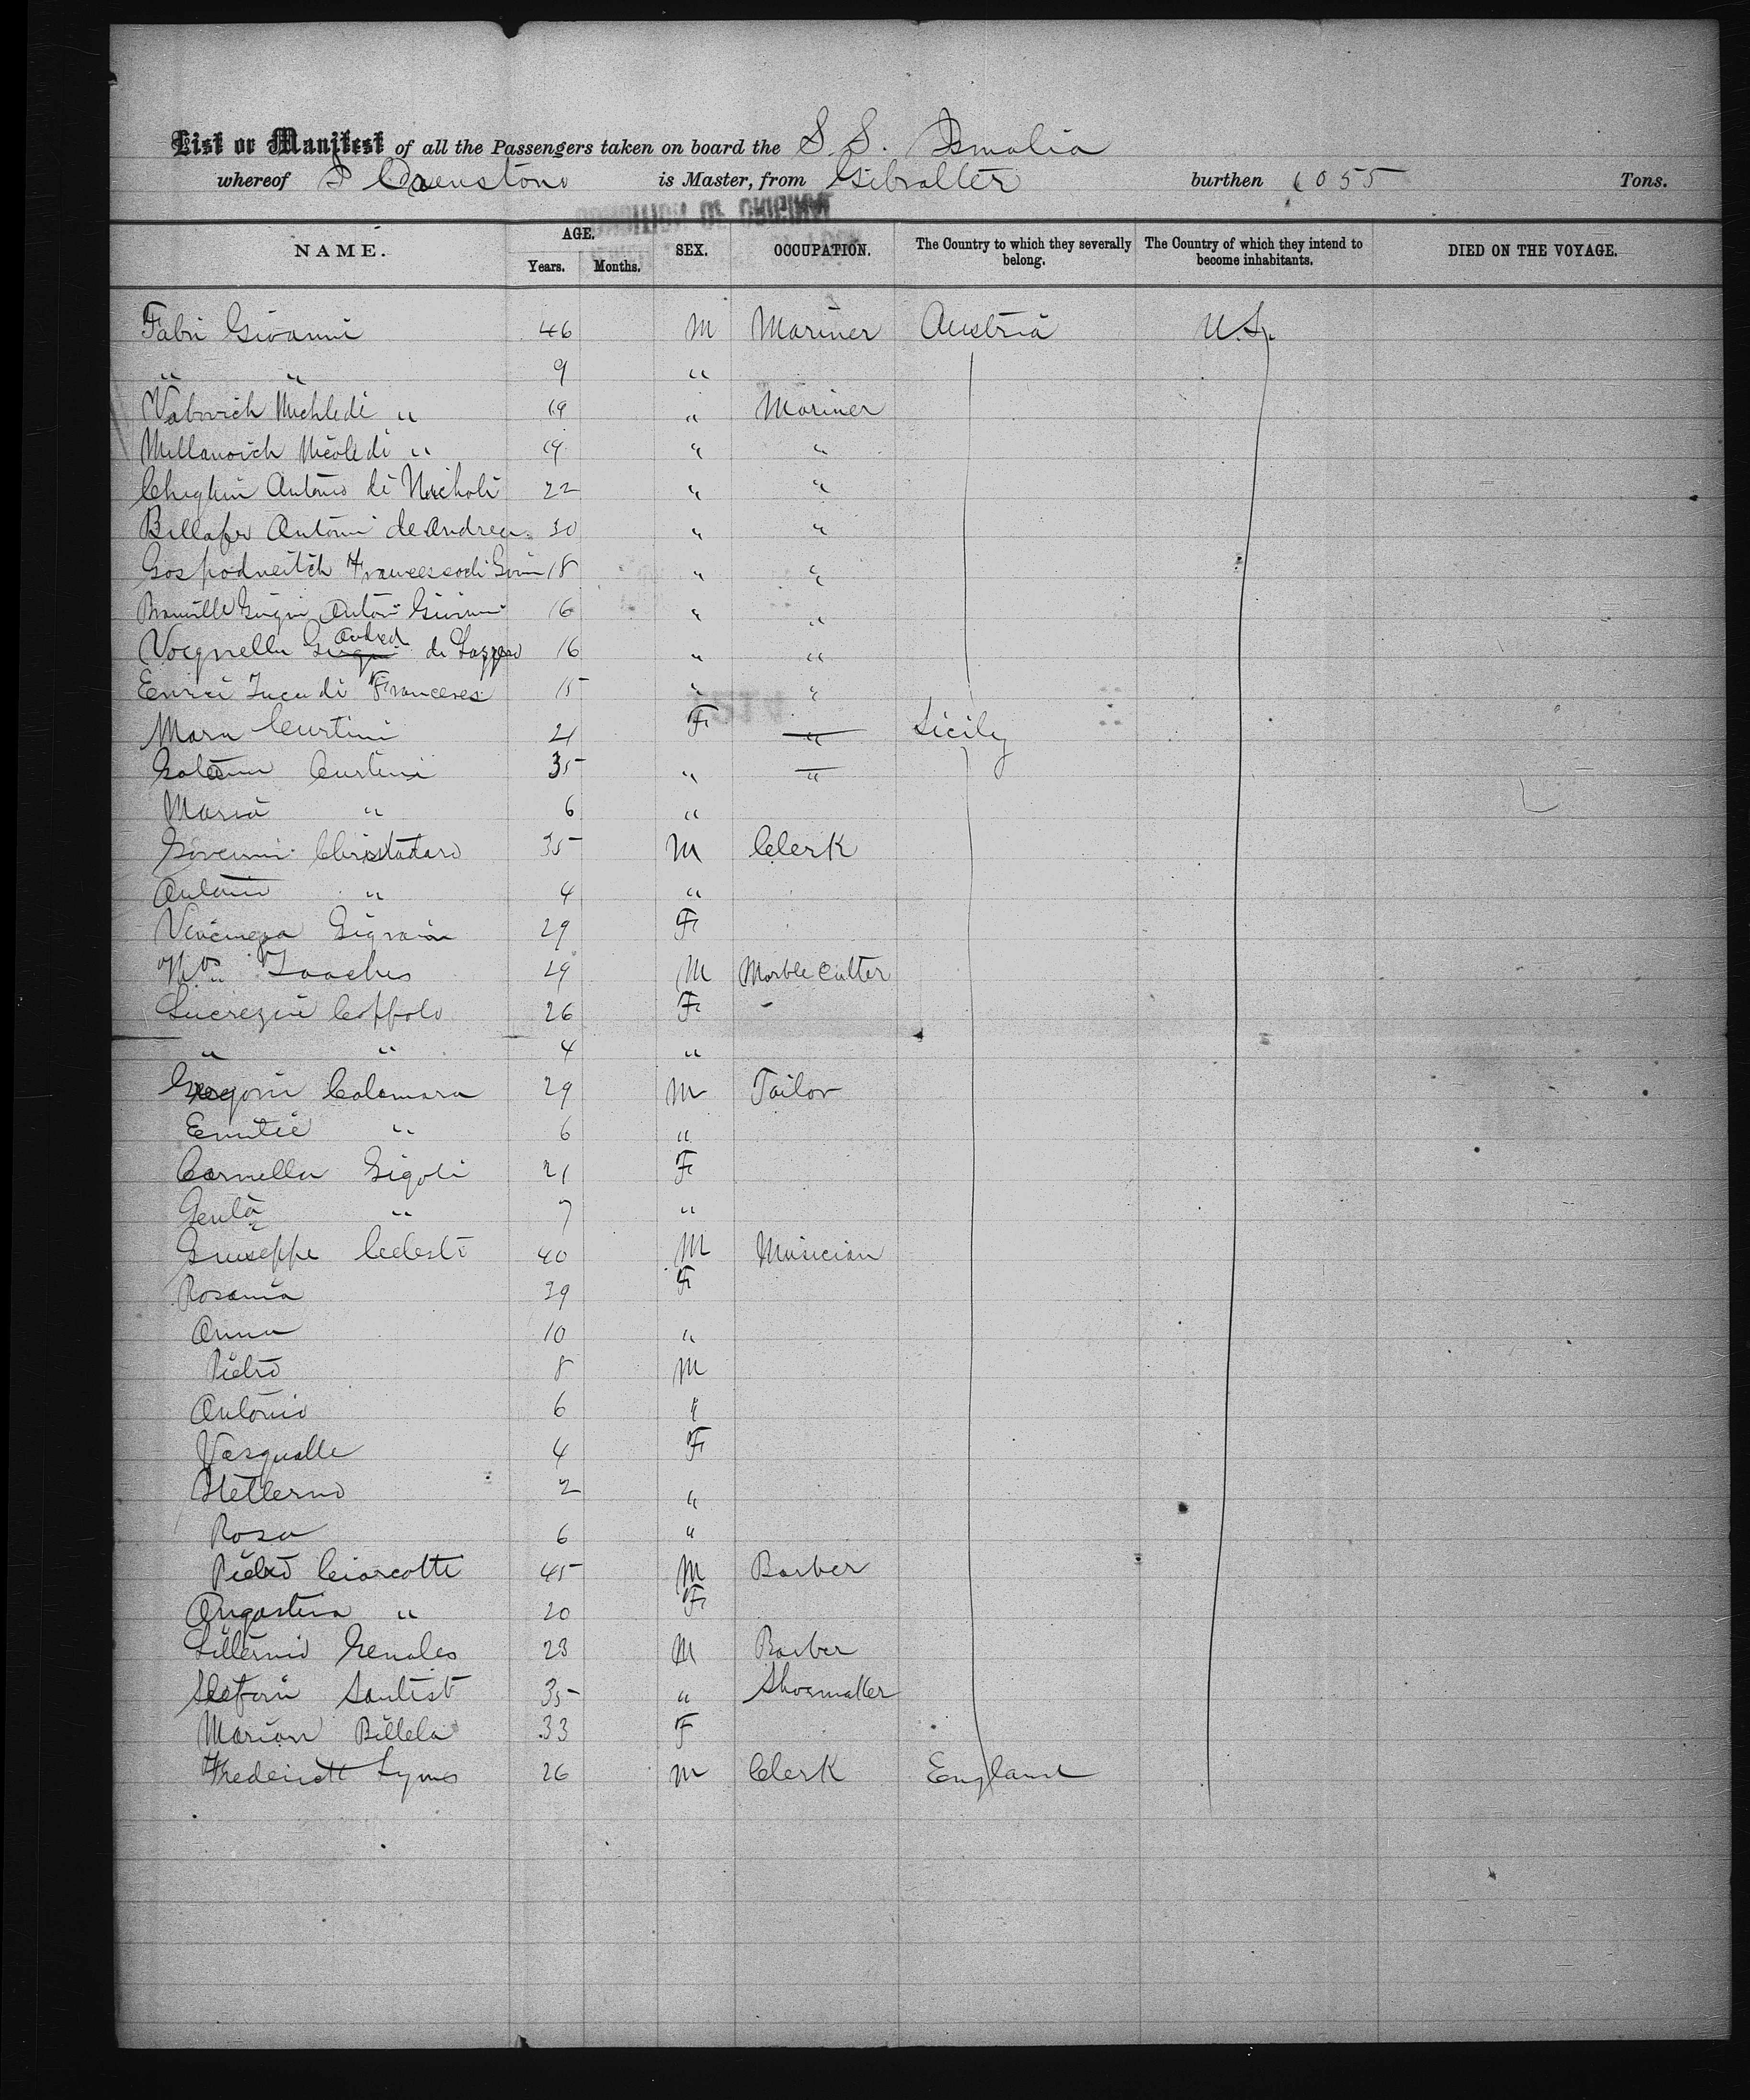 List or Manifest of all the Passengers taken on board the S. S. Ismalia
whereof is Master, from Gibralter burthen 1055 Tons.
NAME. AGE. Years. Months. SEX. OCCUPATION. The Country to which they severally belong. The Country of which they intend to become inhabitants. DIED ON THE VOYAGE.
Fabri Giovanni 46 M Mariner Austria U.S.
" " 9 "
Vabovich Michle di " 19 " Mariner
Millanovich Nicole di " 19 " "
Antonio di Nicholi 22 " "
Antoni de Andrea 30 " "
Gospodneitch Francesco di 18 " "
Antoni Giovanni 16 " "
Andrea de Lazzaro 16 " "
Luca di Frances 15 " "
Mara Curtini 21 F " Sicily
Curtini 35 " "
Maria " 6 "
Giovanni Christataro 35 M Clerk
Antonio " 4 "
29 F
29 M Marble Cutter
Lucrezia Coffolo 26 F -
" " 4 "
Gregorio Calamara 29 M Tailor
Emilie " 6 "
Carmella Gigoli 21 F
" 7 "
Giuseppe Celesti 40 M Musician
Rosania 39 F
Anna 10 "
Pietro 8 M
Antonio 6 "
Vasqualle 4 F
2 "
Rosa 6 "
Pietro Ciarcotti 45 M Barber
Angastina " 20 F
23 M Barber
Santist 35 " Shoemaker
Marian Billela 33 F
Frederick Lyons 26 M Clerk England